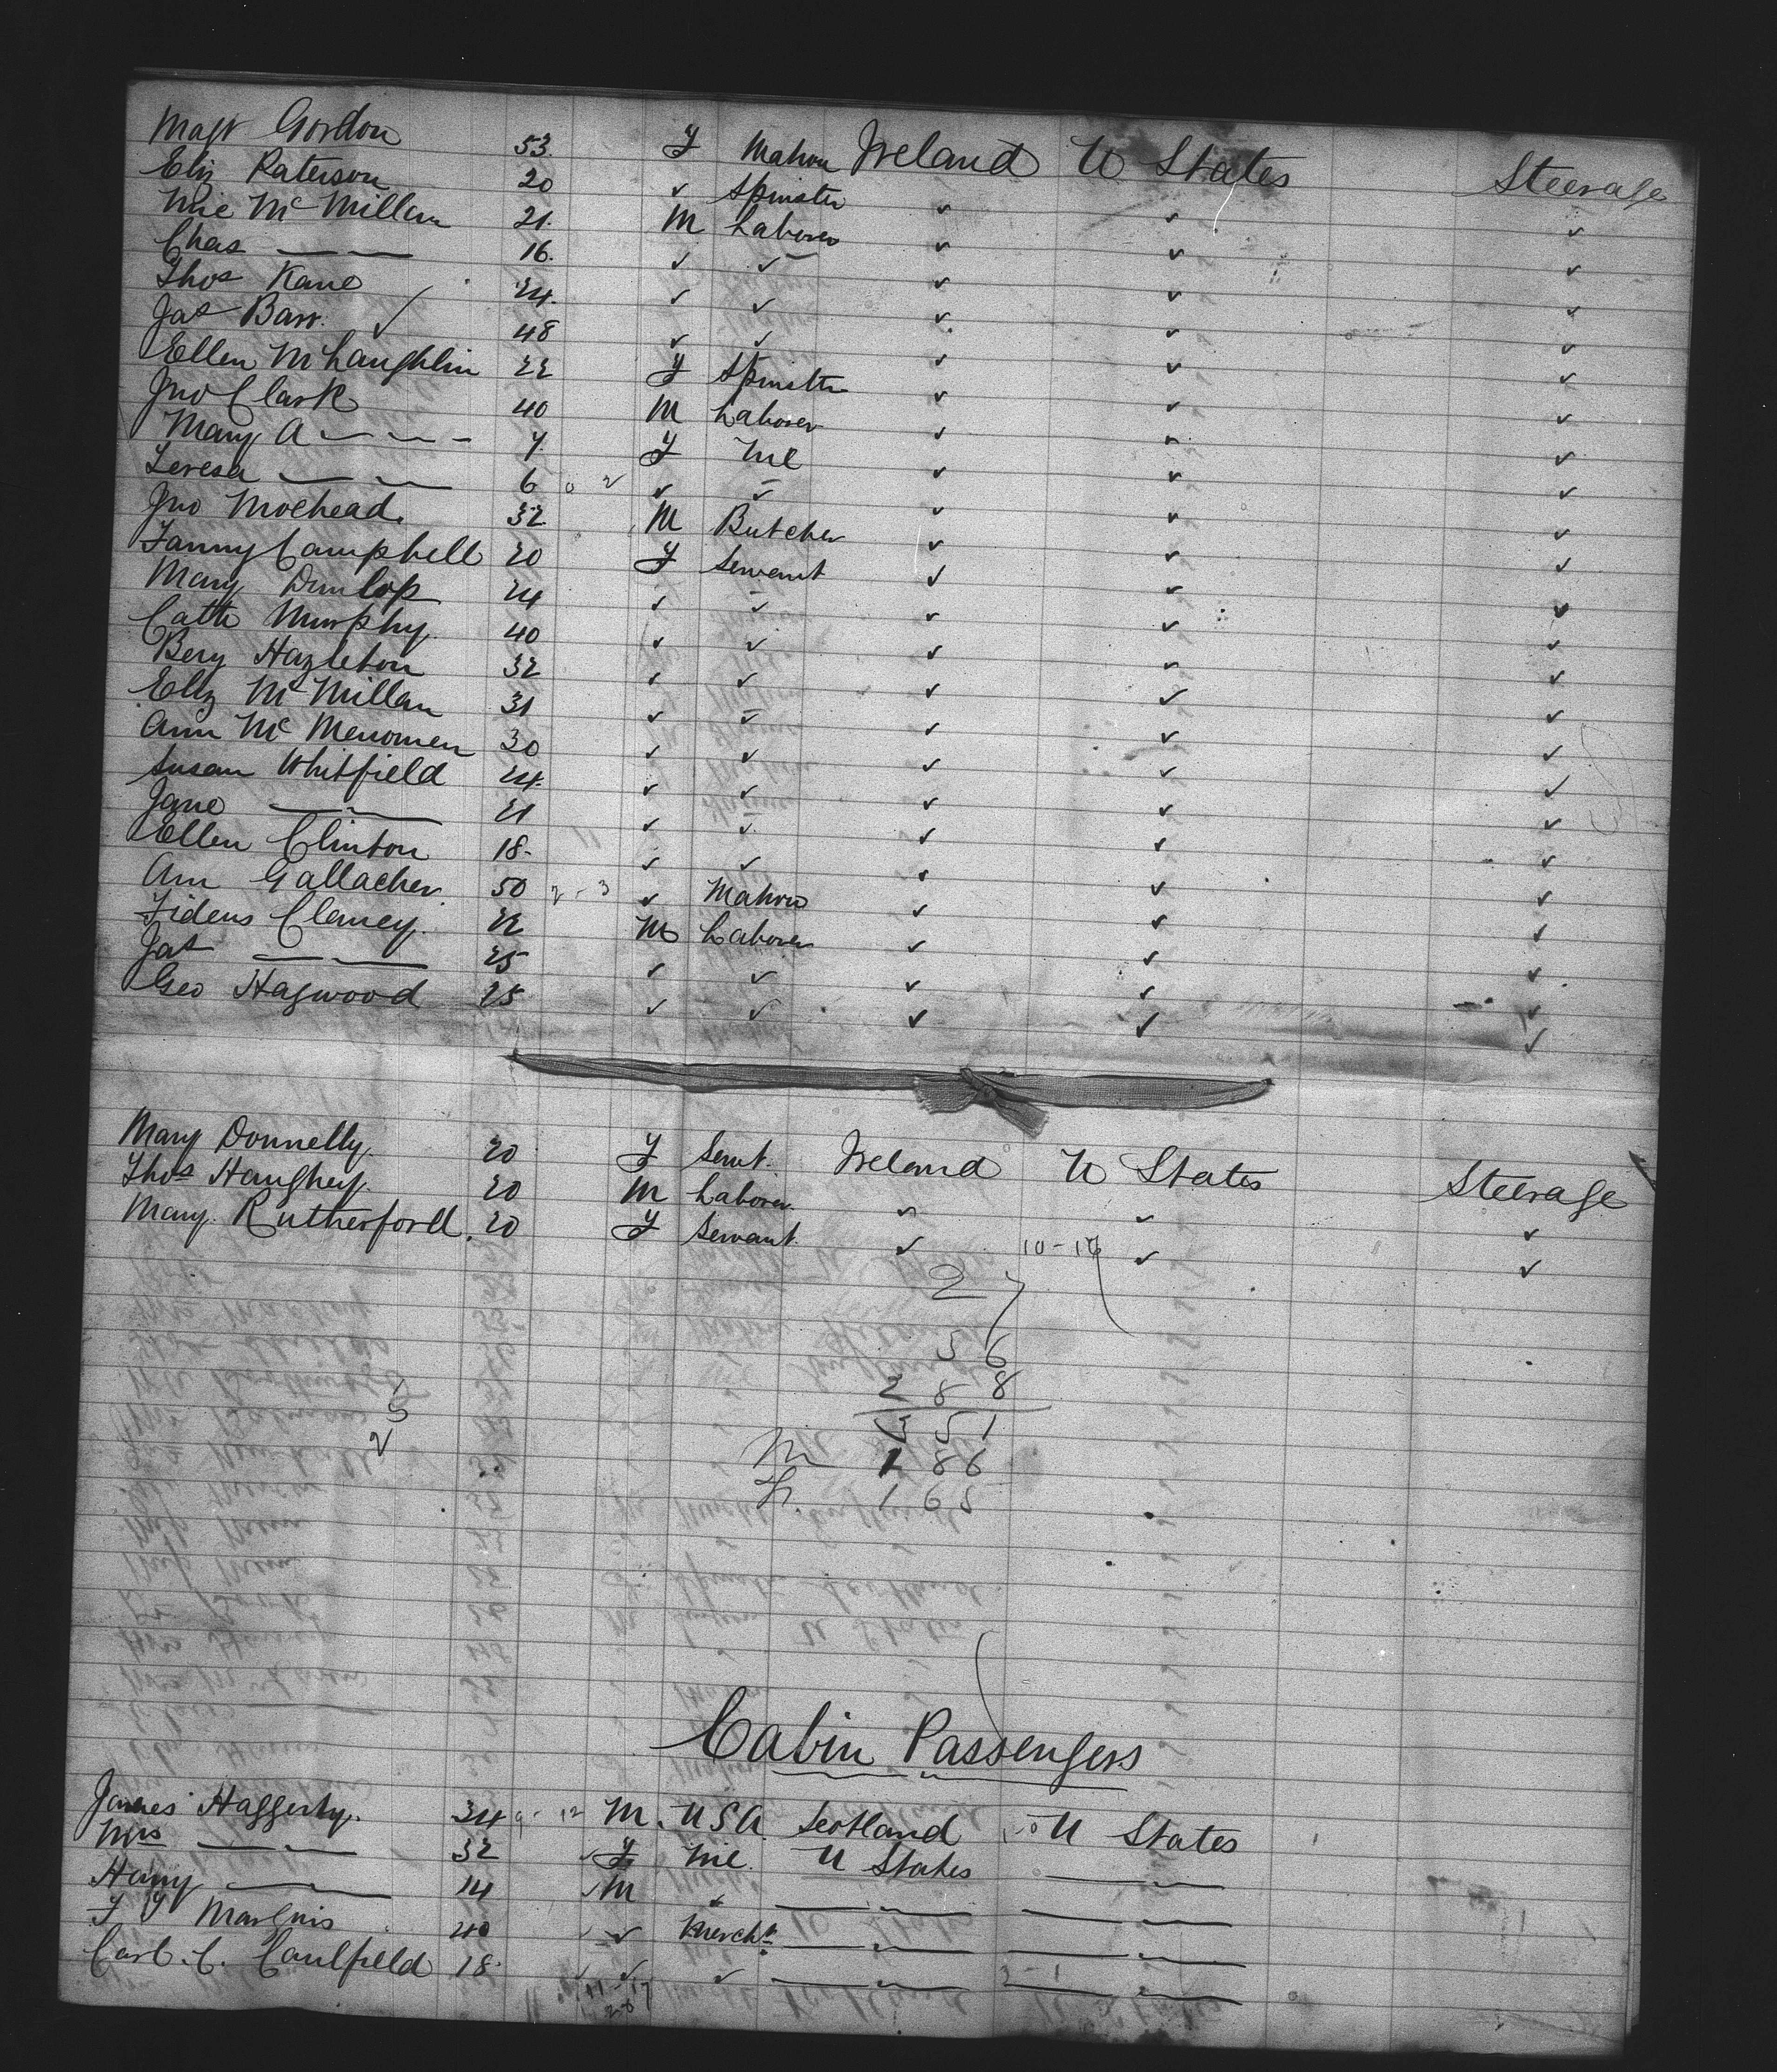 Magt Gordon 53 F Matron Ireland U States Steerage
Eliz Paterson 20 ✓ Spinster ✓ ✓ ✓
McMillan 21 M Laborer ✓ ✓ ✓
Chas — — 16 ✓ ✓ ✓ ✓ ✓
Thos Kane 24 ✓ ✓ ✓ ✓ ✓
Jas Barr ✓ 48 ✓ ✓ ✓ ✓ ✓
Ellen McLaughlin 22 F Spinster ✓ ✓ ✓
Jno Clark 40 M Laborer ✓ ✓ ✓
Mary A — — — 7 F Nil ✓ ✓ ✓
Teresa — — 6 ✓ ✓ ✓ ✓ ✓
Jno Moehead 32 M Butcher ✓ ✓ ✓
Fanny Campbell 20 F Servant ✓ ✓ ✓
Mary Dunlop 24 ✓ ✓ ✓ ✓ ✓
Cath Murphy 40 ✓ ✓ ✓ ✓ ✓
Hazleton 32 ✓ ✓ ✓ ✓ ✓
Eliz McMillan 31 ✓ ✓ ✓ ✓ ✓
Ann Mc Menomen 30 ✓ ✓ ✓ ✓ ✓
Susan Whitfield 24 ✓ ✓ ✓ ✓ ✓
Jane — — 21 ✓ ✓ ✓ ✓ ✓
Ellen Clinton 18 ✓ ✓ ✓ ✓ ✓
Ann Gallacher 50 2-3 ✓ Matron ✓ ✓ ✓
Clancy 22 M Laborer ✓ ✓ ✓
Jas — — 25 ✓ ✓ ✓ ✓ ✓
Geo Hagwood 25 ✓ ✓ ✓ ✓ ✓
Mary Donnelly 20 F Servt. Ireland U States Steerage
Thos Haughey 20 M Laborer ✓ ✓ ✓
Mary Rutherford 20 F Servant ✓ 10-16 ✓ ✓
27
56
288
351
M 186
F 165
Cabin Passengers
James Haggerty 34 9-12 M. USA. Scotland U States
Mrs — — 32 ✓ F Nil. U States — —
Harry — — 14 ✓ M ✓ — — — —
Marquis 40 ✓ ✓ Mercht — — — —
Carl. C. Caulfield 18 ✓ ✓ ✓ — — 2-1 — —
11-17
2-6